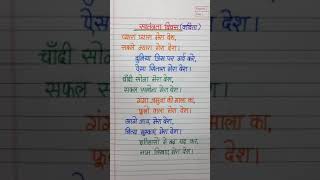 स्वतंत्रता दिवस (कविता)
प्यारा प्यारा मेरा देश,
सबसे न्यारा मेरा देश।
दुनिया जिस पर गर्व करे,
ऐसा सितारा मेरा देश।
चाँदी सोना मेरा देश,
सफल सलोना मेरा देश।
गंगा जमुना की माला का,
फूलों वाला मेरा देश।
आगे जाए मेरा देश,
नित्य मुस्काए मेरा देश।
इतिहासों में बढ़ चढ़ कर,
नाम लिखाए मेरा देश।